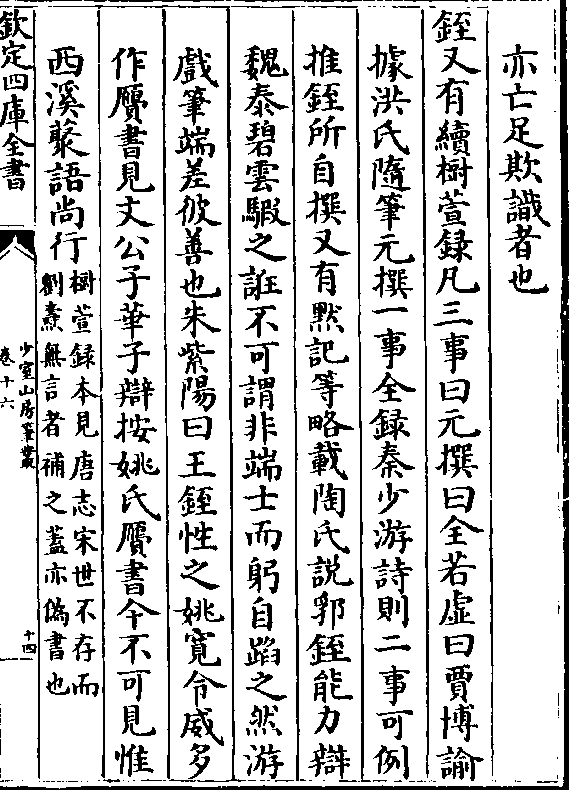 亦亡足欺識者也
銍又有續樹萱録凡三事曰元撰曰全若虛曰賈博諭
據洪氏隨筆元撰一事全録秦少游詩則二事可例
推銍所自撰又有默記等略載陶氏說郛銍能力辯
魏泰碧雲騢之誣不可謂非端士而躬自蹈之然游
戲筆端差彼善也朱紫陽曰王銍性之姚寛令威多
作贋書見丈公子華子辯按姚氏贋書今不可見惟
西溪聚語尚行樹萱録本見唐志宋世不存而
劉燾無言者補之蓋亦偽書也
欽定四庫全書
少室山房筆叢
卷十六
十四